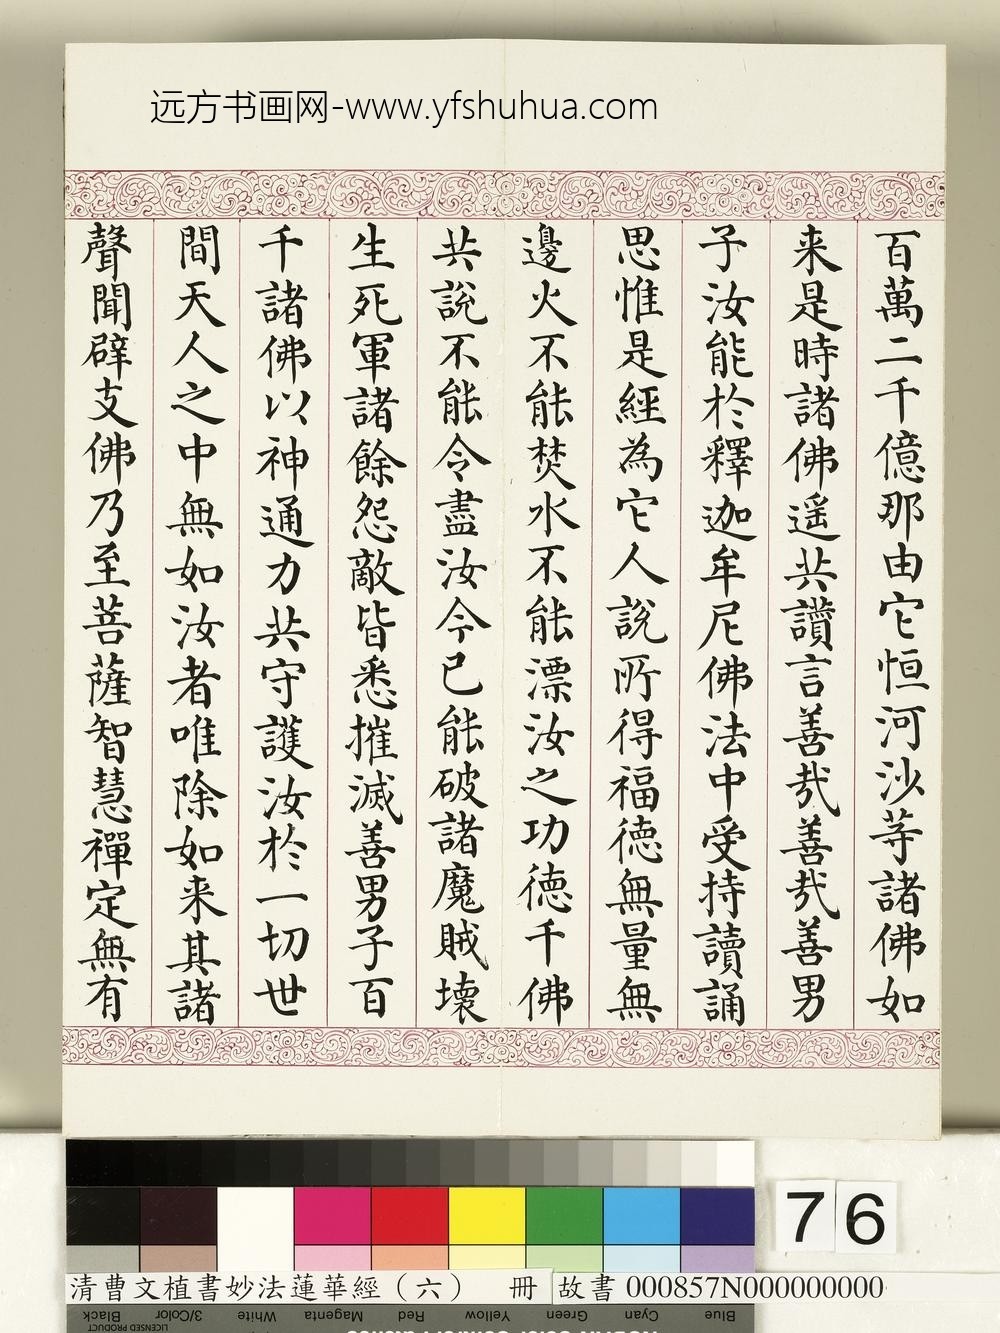 远方书画网-www.yfshuhua.com
百萬二千億那由它恒河沙等諸佛如
来是時諸佛遥共讚言善哉善哉善男
子汝能於釋迦牟尼佛法中受持讀誦
思惟是經為它人說所得福德無量無
邊火不能焚水不能漂汝之功德千佛
共說不能令盡汝今已能破諸魔賊壞
生死軍諸餘怨敵皆悉摧滅善男子百
千諸佛以神通力共守護汝於一切世
間天人之中無如汝者唯除如来其諸
聲聞辟支佛乃至菩薩智慧禪定無有
76
清曹文植書妙法蓮華經（六） 冊 故書 000857N000000000
Black 3/Color White Magenta Red Yellow Green Cyan Blue
LICENSED PRODUCT